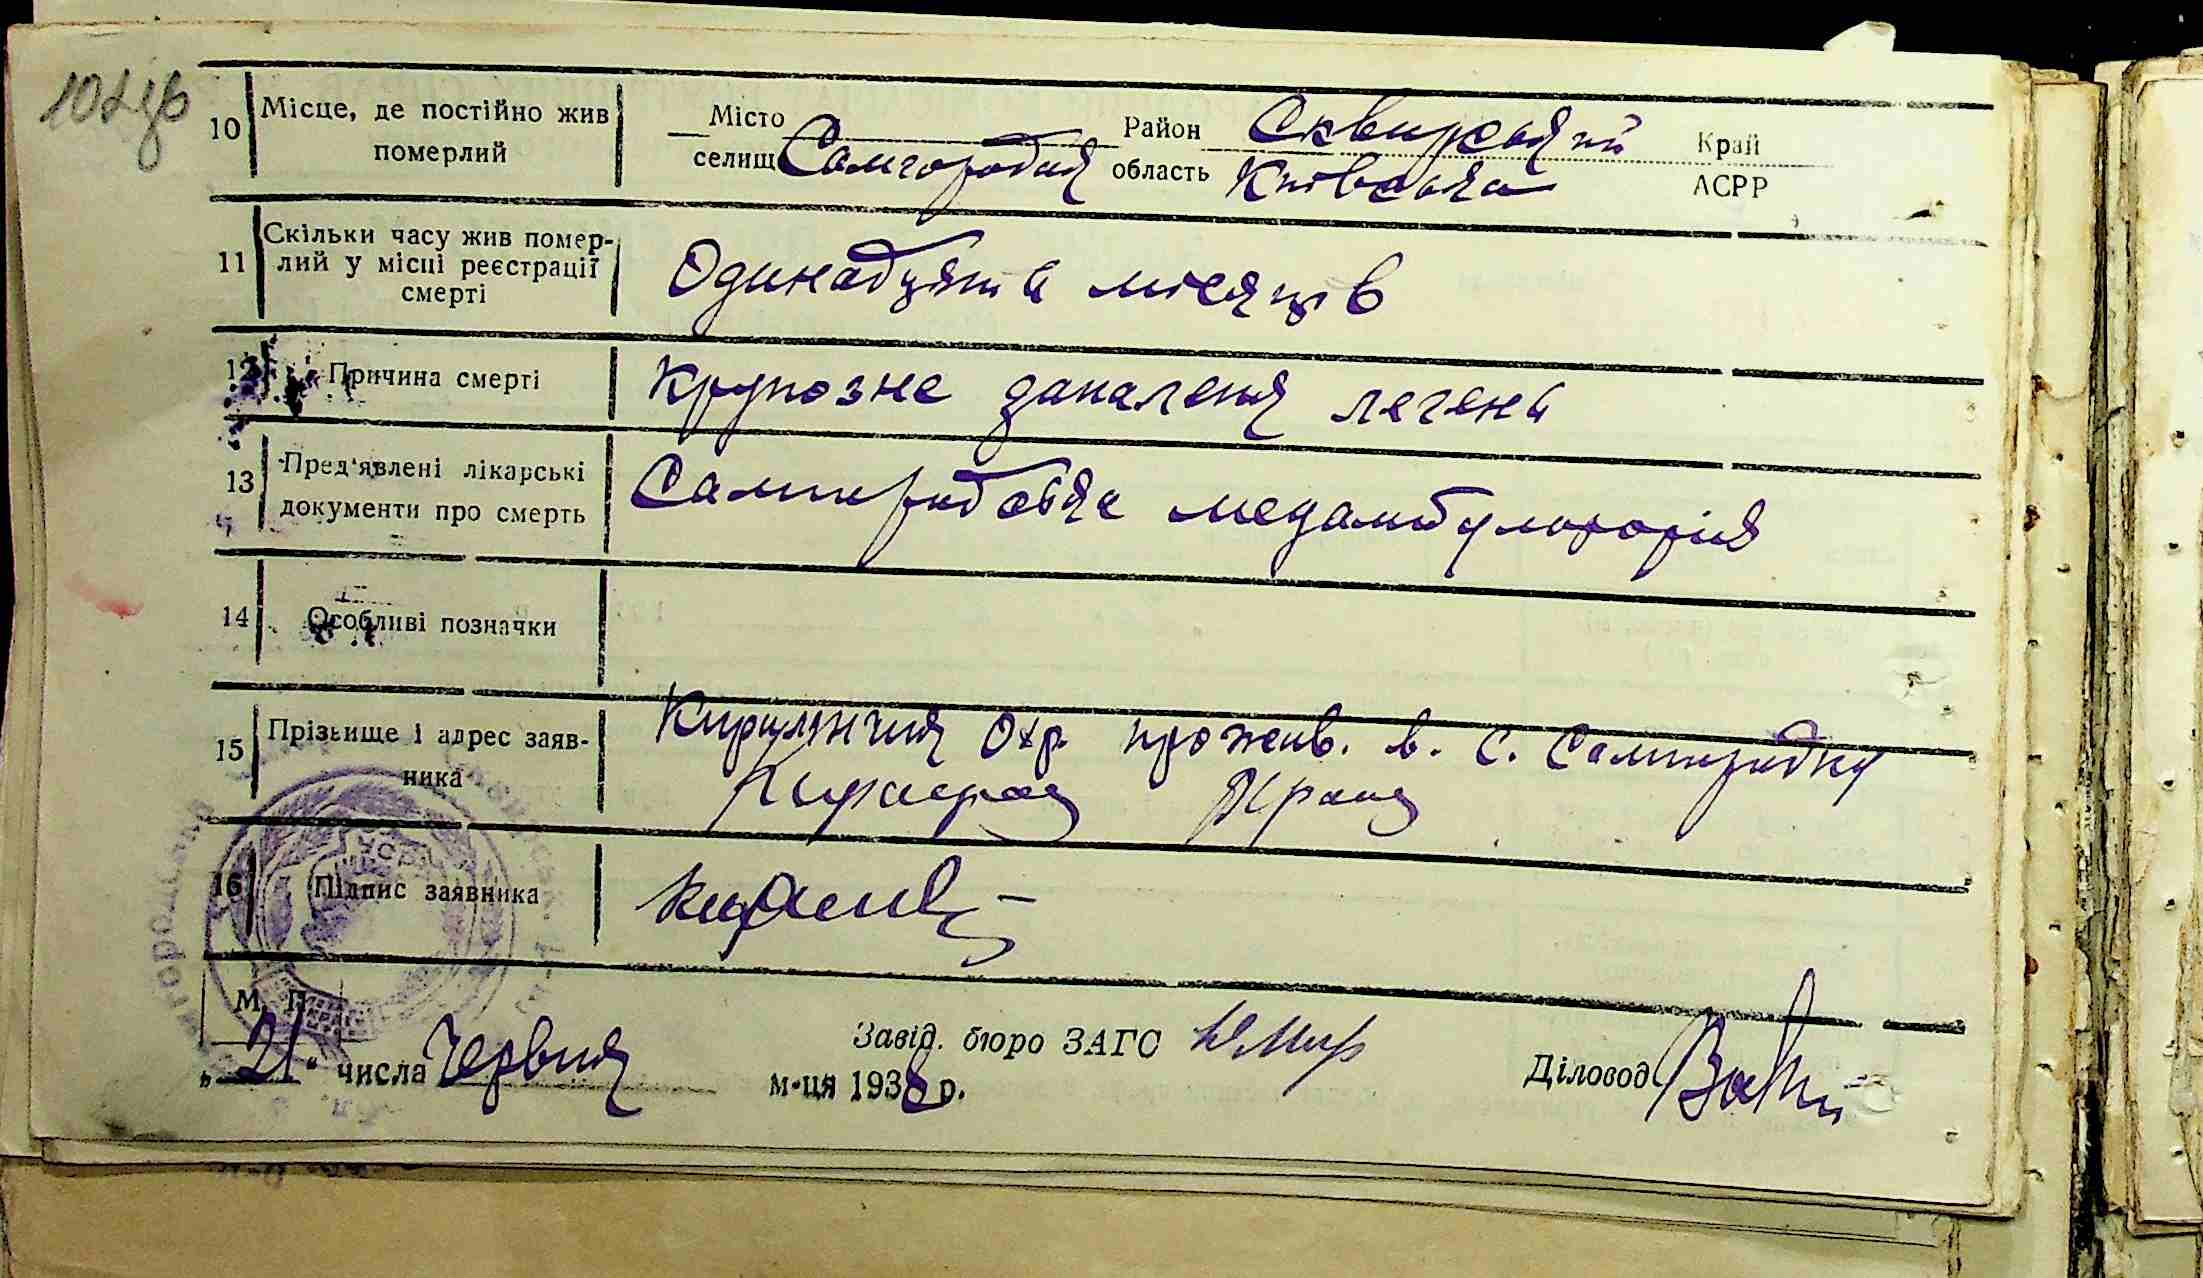 10 Місце, де постійно жив померлий
Місто
селищ Самгородня
Район Сквирський Край
область Київська АСРР
11 Скільки часу жив помер-
лий у місці реєстрації
смерті
Одинадцять місяців
12 Причина смерті
Крупозне запаленя легень
13 Пред'явлені лікарські
документи про смерть
Самгородська медамбулаторія
14 Особливі позначки
15 Прізвище і адрес заяв-
ника
прожив. в. с. Самгородку
16 Підпис заявника
М. П.
„21“ числа Червня м-ця 1938 р.
Завід. бюро ЗАГС
Діловод